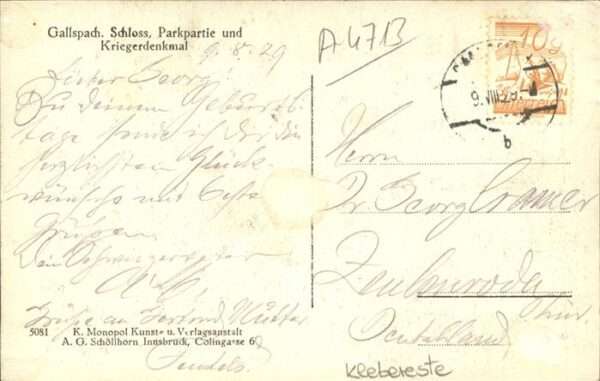 Gallspach. Schloss, Parkpartie und
Kriegerdenkmal
9.8.29
Lieber Georg!
Zu deinem Geburts-
tage sende ich dir die
herzlichsten Glück-
wünsche und
Grüssen
Dein Schwiegervater
Grüsse an Gertrud, Mutter
5081 K. Monopol Kunst- u. Verlagsanstalt
A. G. Schöllhorn Innsbruck, Colingasse 6
A 4713
10g
9.VIII.29
b
Herrn
Dr. Georg Cramer
Zeulenroda
Thür.
Deutschland
Klebereste